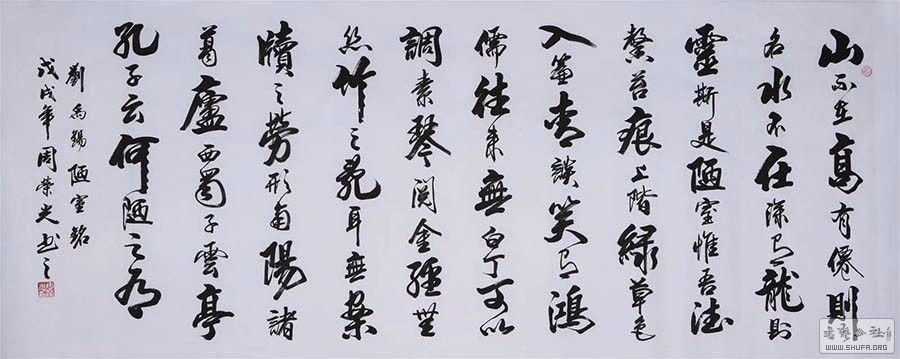 山不在高有僊則
名水不在深有龍則
靈斯是陋室惟吾德
馨苔痕上階綠草色
入簾青談笑有鴻
儒往來無白丁可以
調素琴閱金經無
絲竹之亂耳無案
牘之勞形南陽諸
葛廬西蜀子雲亭
孔子云何陋之有
劉禹錫陋室銘
戊戌年周榮光書之
WWW.SHUFA.ORG